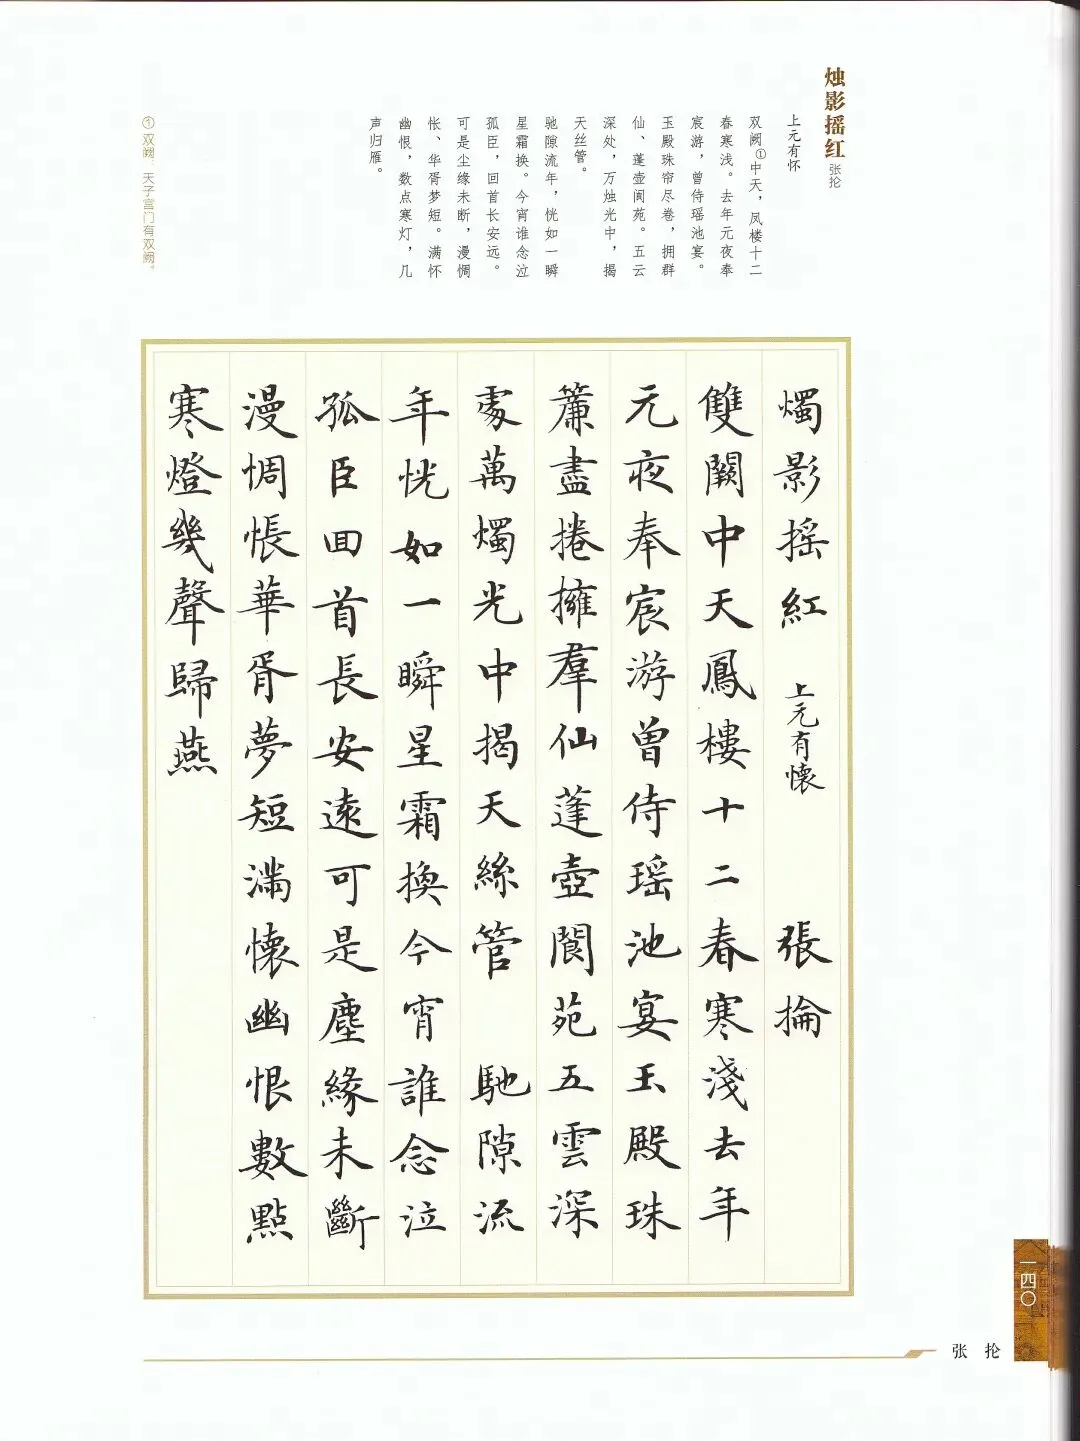 烛影摇红 张抡
上元有怀
双阙①中天，凤楼十二
春寒浅。去年元夜奉
宸游，曾侍瑶池宴。
玉殿珠帘尽卷，拥群
仙、蓬壶阆苑。五云
深处，万烛光中，揭
天丝管。
驰隙流年，恍如一瞬
星霜换。今宵谁念泣
孤臣，回首长安远。
可是尘缘未断，漫惆
怅、华胥梦短。满怀
幽恨，数点寒灯，几
声归雁。
①双阙：天子宫门有双阙。
燭影摇紅 上元有懷 張掄
雙闕中天鳳樓十二春寒淺去年
元夜奉宸游曾侍瑶池宴玉殿珠
簾盡捲擁羣仙蓬壺閬苑五雲深
處萬燭光中揭天絲管 馳隙流
年恍如一瞬星霜換今宵誰念泣
孤臣回首長安遠可是塵緣未斷
漫惆悵華胥夢短滿懷幽恨數點
寒燈幾聲歸燕
一四〇
张 抡